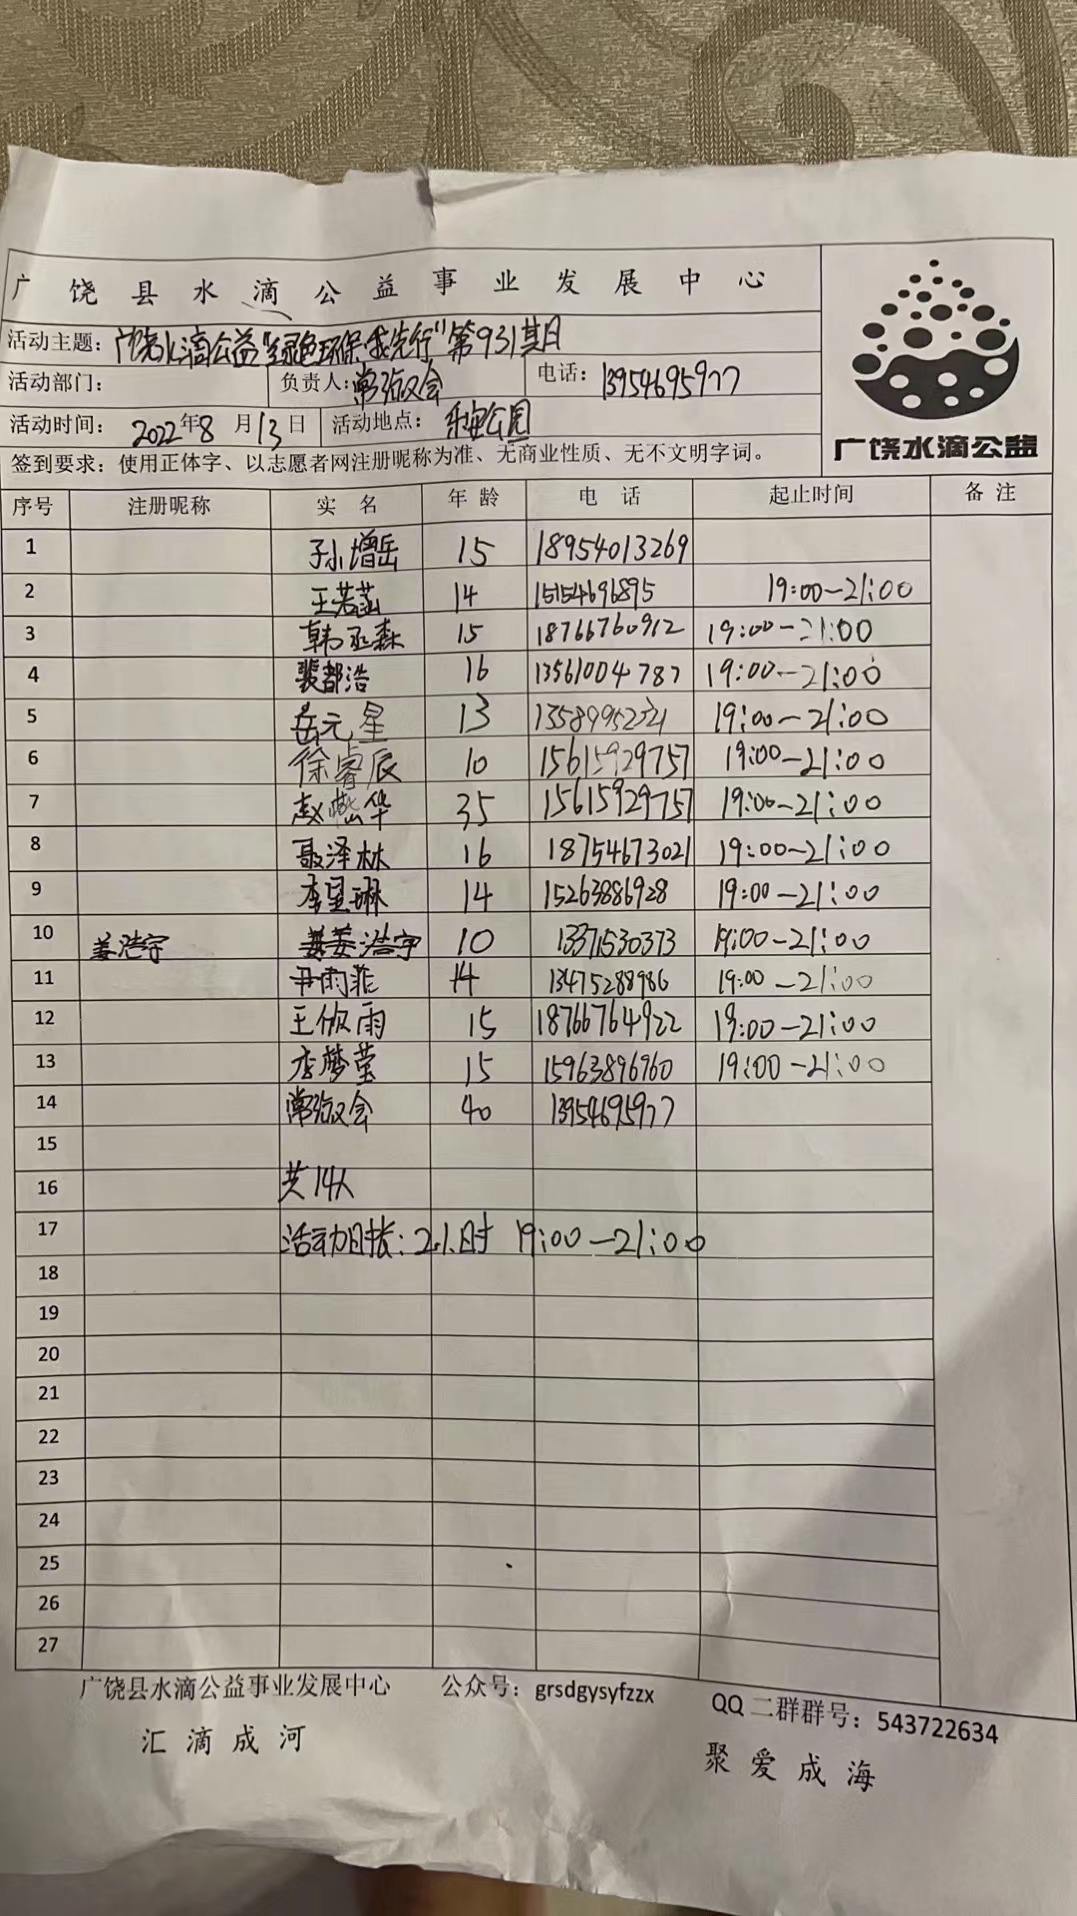 广饶县水滴公益事业发展中心
活动主题：广饶水滴公益"绿色环保我先行"第931期
活动部门： 负责人：常 会 电话：13954695977
活动时间：2022年8月13日 活动地点：乐安公园
签到要求：使用正体字、以志愿者网注册昵称为准、无商业性质、无不文明字词。
广饶水滴公益
序号 注册昵称 实名 年龄 电话 起止时间 备注
1 孙增岳 15 18954013269
2 王若菡 14 15154696895 19:00-21:00
3 韩丞森 15 18766760912 19:00-21:00
4 裴都浩 16 13561004787 19:00-21:00
5 岳元星 13 19:00-21:00
6 徐睿辰 10 15615929757 19:00-21:00
7 赵燃华 35 15615929757 19:00-21:00
8 聂泽林 16 18754673021 19:00-21:00
9 李星琳 14 15263886928 19:00-21:00
10 姜浩宇 姜浩宇 10 13371530373 19:00-21:00
11 尹雨菲 14 13475288986 19:00-21:00
12 王依雨 15 18766764922 19:00-21:00
13 李梦莹 15 15963896960 19:00-21:00
14 常 会 40 13954695977
15
16 共14人
17 活动时长：2小时 19:00-21:00
18
19
20
21
22
23
24
25
26
27
广饶县水滴公益事业发展中心 公众号：grsdgysyfzzx QQ二群群号：543722634
汇滴成河 聚爱成海